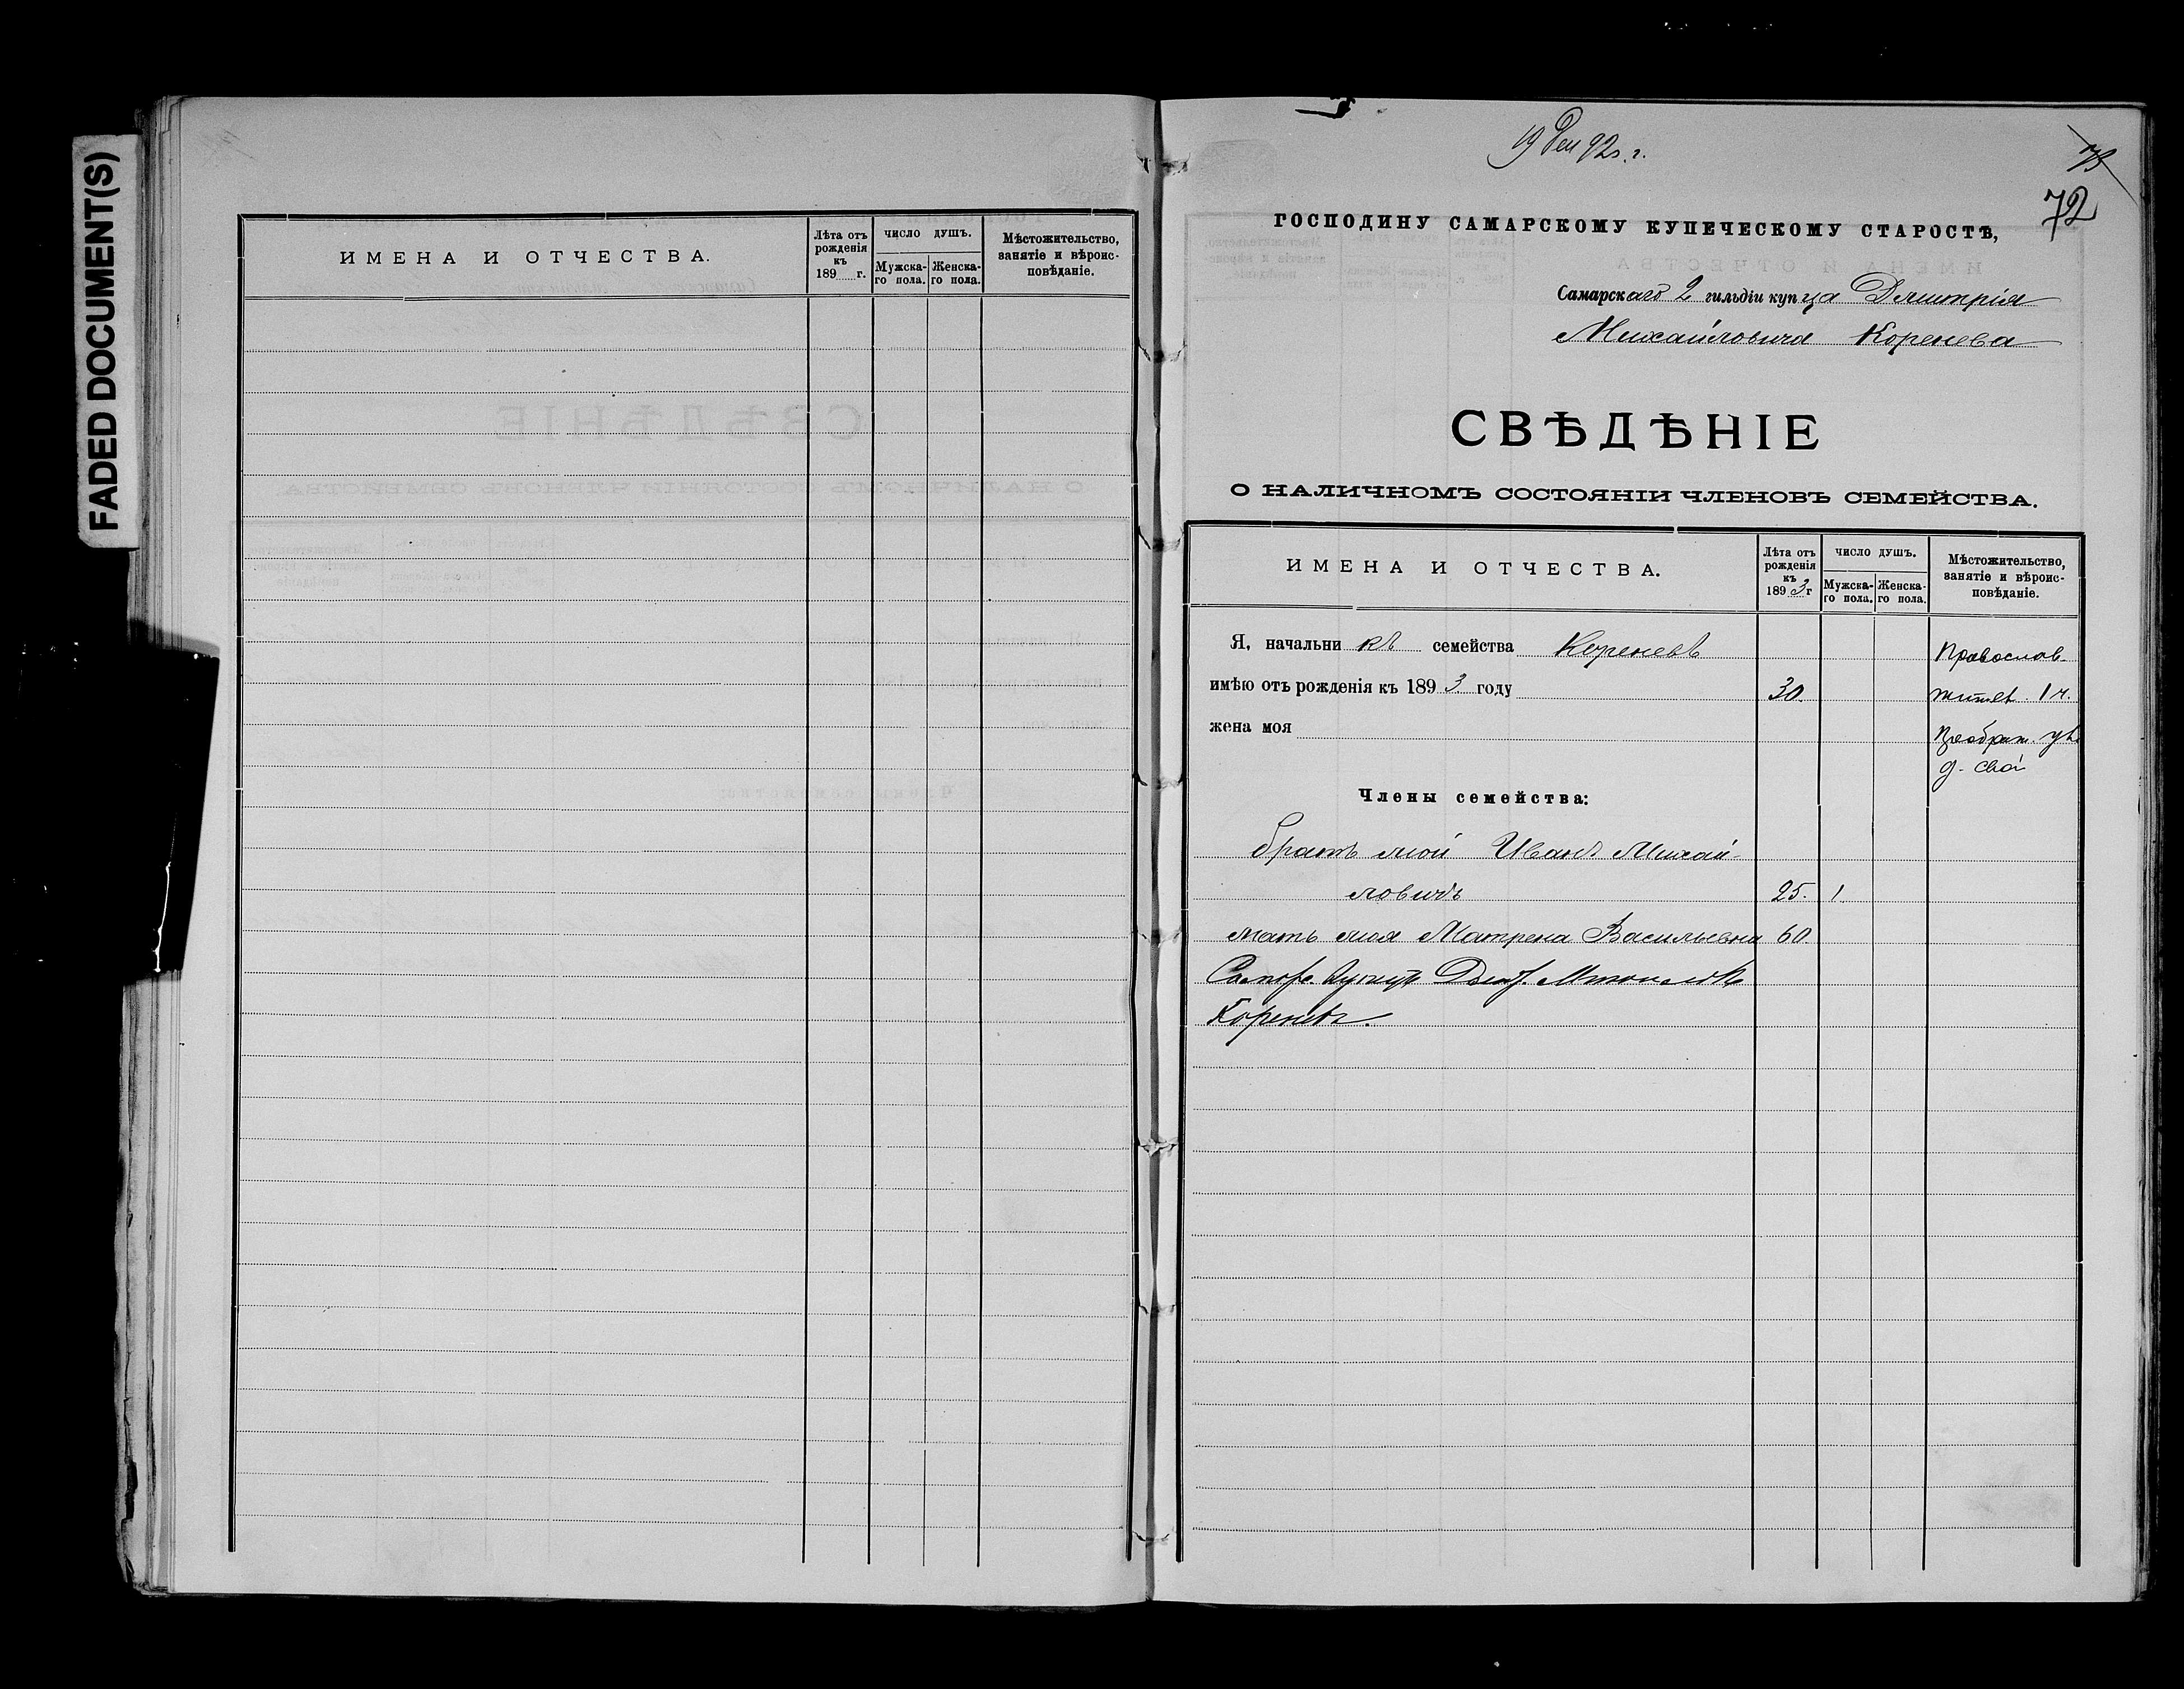 FADED DOCUMENT(S)
ИМЕНА И ОТЧЕСТВА.
Лѣта отъ рожденія къ 189 г.
ЧИСЛО ДУШЪ.
Мужскаго пола.
Женскаго пола.
Мѣстожительство, занятіе и вѣроисповѣданіе.
19 Дек 92 г.
72
ГОСПОДИНУ САМАРСКОМУ КУПЕЧЕСКОМУ СТАРОСТѢ,
Самарскаго 2 гильдіи купца Дмитрія
Михайловича Коренева
СВѢДѢНІЕ
О НАЛИЧНОМЪ СОСТОЯНІИ ЧЛЕНОВЪ СЕМЕЙСТВА.
ИМЕНА И ОТЧЕСТВА.
Лѣта отъ рожденія къ 1893 г
ЧИСЛО ДУШЪ.
Мужскаго пола.
Женскаго пола.
Мѣстожительство, занятіе и вѣроисповѣданіе.
Я, начальникъ семейства Кореневъ Православ.
имѣю отъ рожденія къ 1893 году 30. 1 ч.
жена моя
д. свой
Члены семейства:
братъ мой Иванъ Михай-
ловичъ 25. 1.
мать моя Матрена Васильевна 60.
Кореневъ.